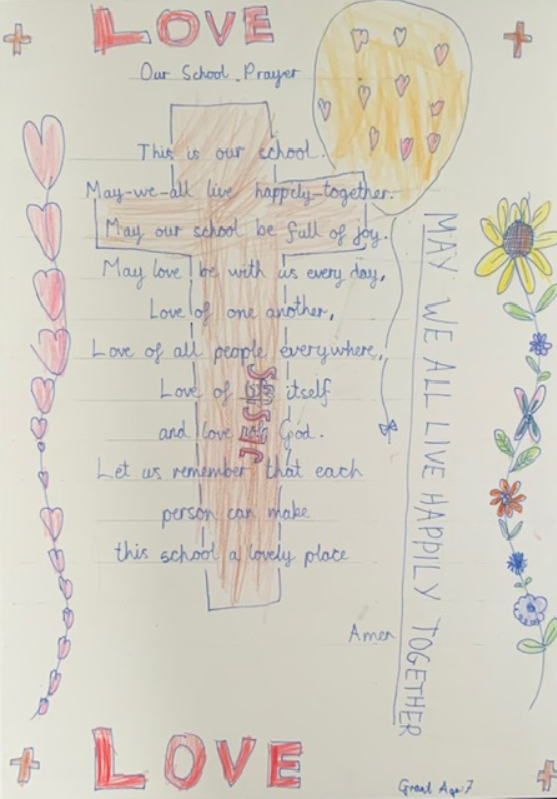 LOVE
Our School Prayer
This is our school.
May-we-all live happely-together.
May our school be full of joy.
May love be with us every day,
Love of one another,
Love of all people everywhere,
Love of itself
and love God.
Let us remember that each
person can make
this school a lovely place
Amen
JESUS
MAY WE ALL LIVE HAPPILY TOGETHER
LOVE
Grant Age 7